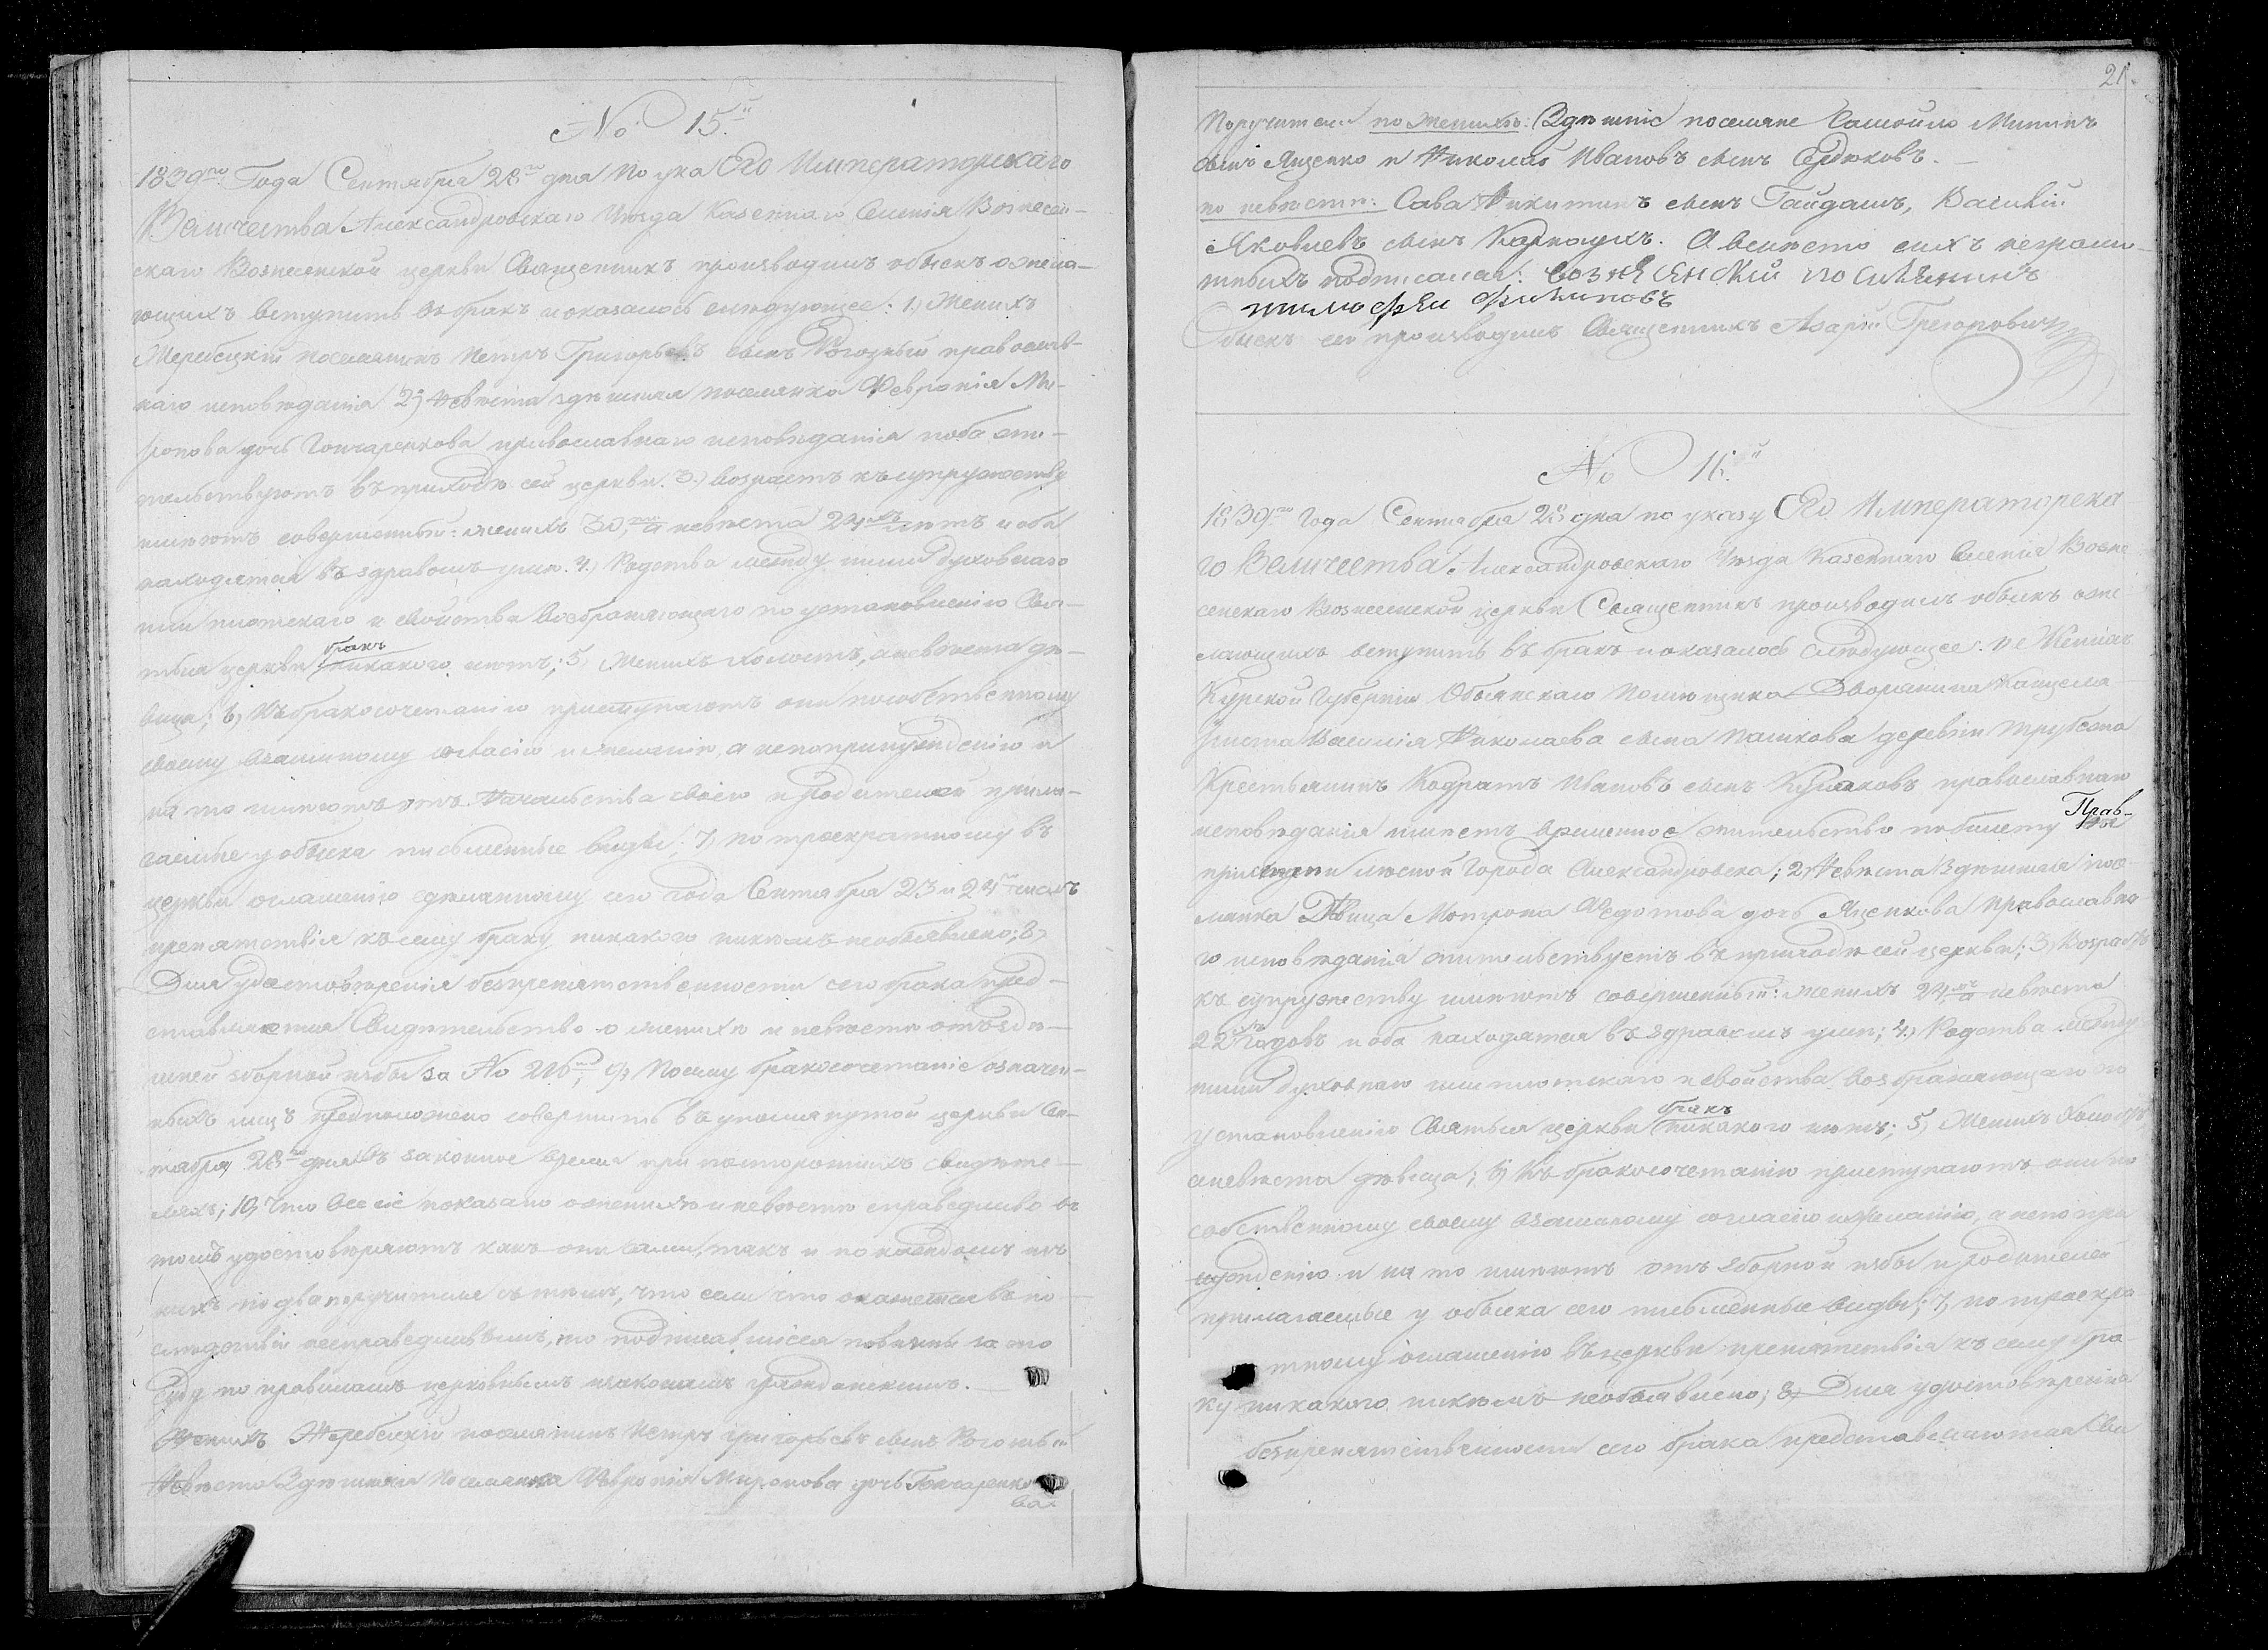 No 15.й
1839го Года Сентября 28го дня по ука Его Императорскаго
Величества Александровскаго Уезда Казеннаго Селенія Вознесен-
скаго Вознесенской церкви Священникъ производилъ обыскъ о жела-
ющихъ вступить въ бракъ и оказалось следующее: 1.) Женихъ
Жеребецкій поселянинъ Петръ Григорьевъ сынъ Рогозный православ-
наго исповѣданія 2е) Невѣста здѣшняя поселянка Февронія Ми-
ронова дочь Гончаренкова православнаго исповѣданія и оба жи-
тельствуютъ въ приходѣ сей церкви. 3.) Возрастъ къ супружеству
имѣютъ совершенный: женихъ 30, а невѣста 24 лѣтъ и оба
находятся въ здравомъ умѣ. 4.) Родства между ними духовнаго
или плотскаго и свойства возбраняющаго по установленію Свя-
тыя церкви бракъ никакого нѣтъ; 5) Женихъ холостъ, а невѣста дѣ-
вица; 6) Къ бракосочетанію приступаютъ они по собственному
своему взаимному согласію и желанію, а не по принужденію и
на то имѣютъ отъ Начальства своего и родителей прила-
гаемые у обыска письменные виды; 7) по троекратному въ
церкви оглашенію сдѣланному сего года Сентября 23 и 24 числъ
препятствія къ сему браку никакого никѣмъ необъявлено; 8)
Для удостовѣренія безпрепятственности сего брака пред-
ставляется Свидѣтельство о женихѣ и невѣстѣ отъ здѣ-
шней зборной избы за No 216, 9) Посему бракосочетаніе означен-
ныхъ лицъ предположено совершить въ упомянутой церкви Сен-
тября 28го дня въ законное время при постороннихъ свидѣте-
ляхъ; 10) Что все сіе показано о женихѣ и невѣстѣ справедливо въ
томъ удостовѣряютъ какъ они сами, такъ и по каждомъ изъ
нихъ по два поручителя съ тѣмъ, что если что окажется въ по-
слѣдствіи несправедливымъ, то подписавшіеся повинны за то
суду по правиламъ церковнымъ и законамъ гражданскимъ.
Женихъ Жеребецкій поселянинъ Петръ Григорьевъ сынъ Рогозный
Невѣста Здѣшняя Поселянка Февронія Миронова дочь Гончаренко
ва
21.
Поручители по Женихѣ: Здѣшніе поселяне Самойло Мининъ
сынъ Яценко и Николай Ивановъ сынъ Сердюковъ.
по невѣстѣ: Сава Никитинъ сынъ Гайдашъ, Василій
Яковлевъ сынъ Карнаухъ. А вмѣсто сихъ неграмо-
тныхъ подписался: вознесенский поселянинъ
тимофеи филиповъ
Обыскъ сей производилъ Священникъ Азарій Григоровичъ
No 16.й
1839го Года Сентября 28 дня по указу Его Императорска
го Величества Александровскаго Уезда Казеннаго Селенія Возне
сенскаго Вознесенской церкви Священникъ производилъ обыскъ о же
лающихъ вступить въ бракъ и оказалось следующее: 1е Женихъ
Курской Губерніи Обоянскаго Помѣщика Дворянина Канцеля
риста Василія Николаева сына Пашкова деревни Трубежа
Крестьянинъ Кодратъ Ивановъ сынъ Кулаковъ православнаго
исповѣданія имѣетъ временное жительство по билету Прав-
при мѣстной Города Александровска; 2) Невѣста Здѣшняя посе
лянка Дѣвица Мотрона Федотова дочь Яценкова православна
го исповѣданія жительствуетъ въ приходѣ сей церкви; 3) Возрастъ
къ супружеству имѣютъ совершенный: женихъ 24, а невѣста
22 годовъ и оба находятся въ здравомъ умѣ; 4.) Родства между
ними духовнаго или плотскаго и свойства возбраняющаго по
установленію Святыя церкви бракъ никакого нѣтъ; 5) Женихъ Холостъ,
а невѣста дѣвица; 6) Къ бракосочетанію приступаютъ они по
собственному своему взаимному согласію и желанію, а не по при
нужденію и на то имѣютъ отъ зборной избы и родителей
прилагаемые у обыска сего письменные виды; 7) по троекра
тному оглашенію въ церкви препятствія къ сему бра-
ку никакого никѣмъ необъявлено; 8) Для удостовѣренія
безпрепятственности сего брака представляются Сви